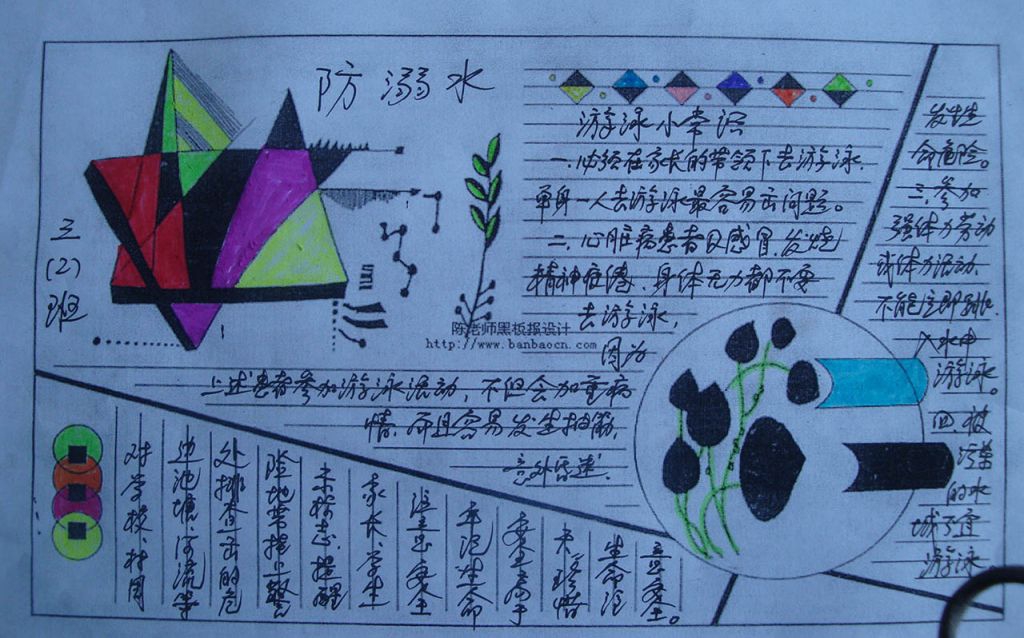 防溺水
三
(2)
班
游泳小常识
一、必须在家长的带领下去游泳.
单身一人去游泳最容易出问题。
二、心脏病患者及感冒、发烧
精神疲倦、身体无力都不要
去游泳,
因为
上述患者参加游泳活动, 不但会加重病
情, 而且容易发生抽筋,
意外昏迷.
发生生
命危险。
三、参加
强体力劳动
或体力活动,
不能立即跳
入水中
游泳。
四、被
污染
的水
域不宜
游泳
陈老师黑板报设计
http://www.banbaocn.com/
对学校、村周
边池塘、河流等
处排查出的危
险地带提出警
示标志. 提醒
家长、学生
注意安全
生命
安全
珍惜
生命注
意安全。